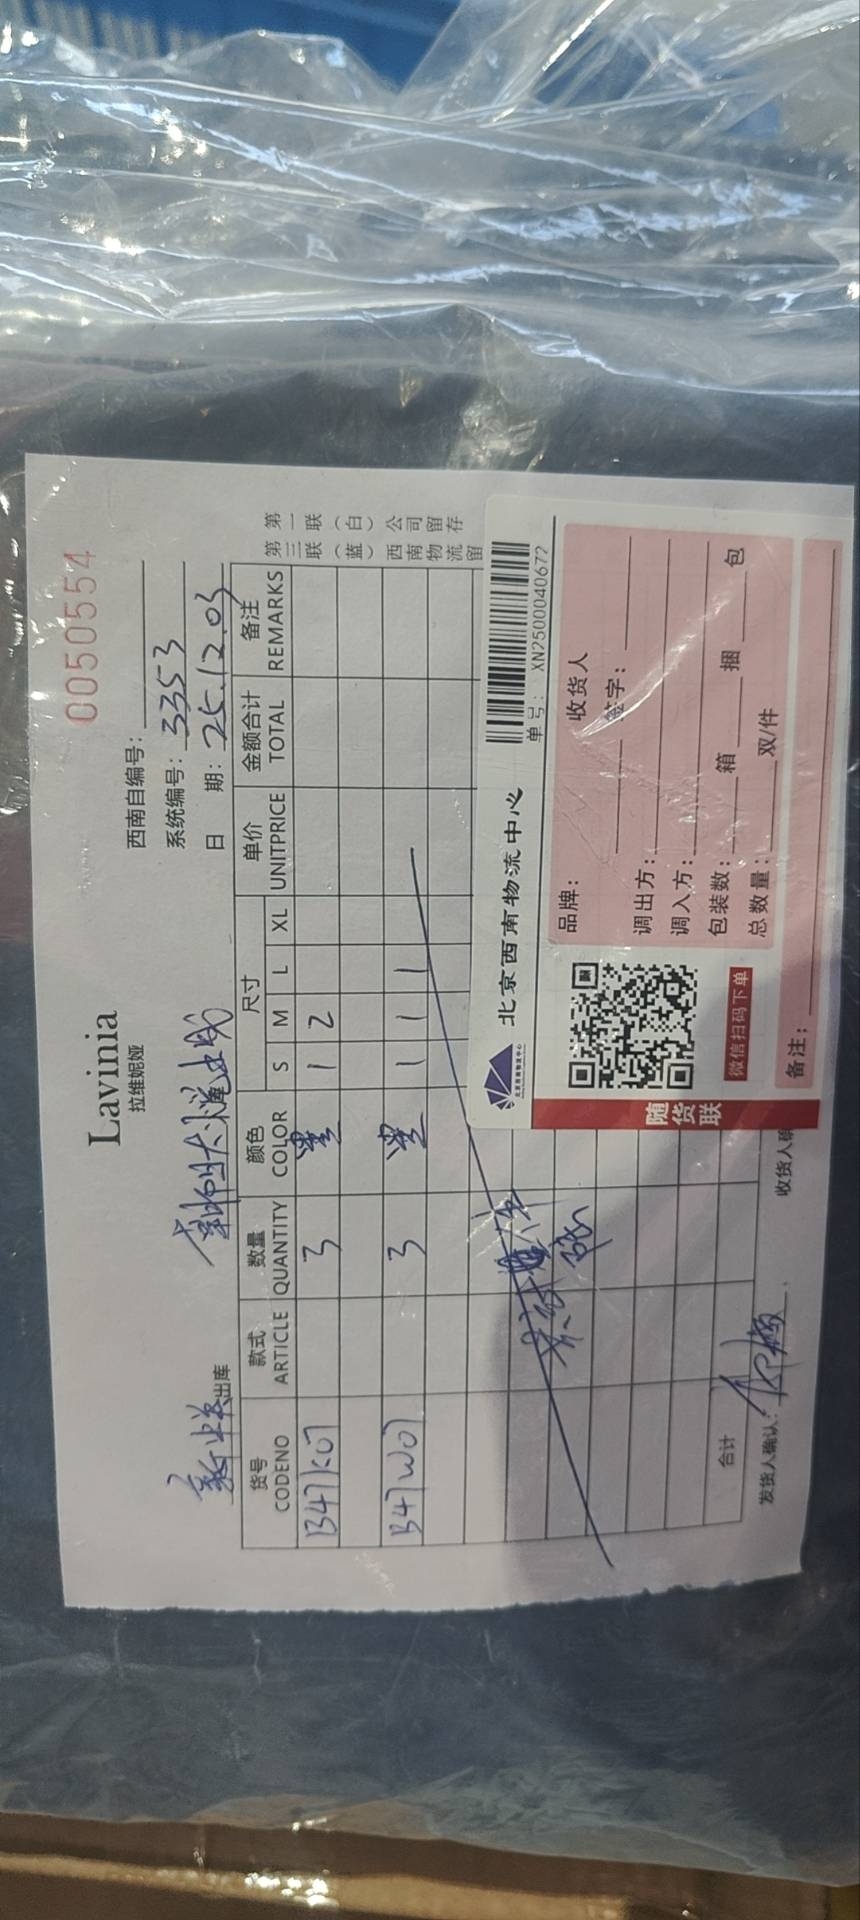 0050554
Lavinia
拉维妮娅
西南自编号：
系统编号：3353
日 期：25.12.03
出库
货号 款式 数量 颜色 尺寸 单价 金额合计 备注
CODENO ARTICLE QUANTITY COLOR S M L XL UNITPRICE TOTAL REMARKS
B47K07 3 1 2
B47W07 3 1 1 1
合计
发货人确认：
收货人确
第一联（白）公司留存
第三联（蓝）西南物流留
北京西南物流中心
单号： XN2500040672
品牌： 收货人
签字：
调出方：
调入方：
包装数： 箱 捆 包
总数量： 双/件
备注：
微信扫码下单
随货联